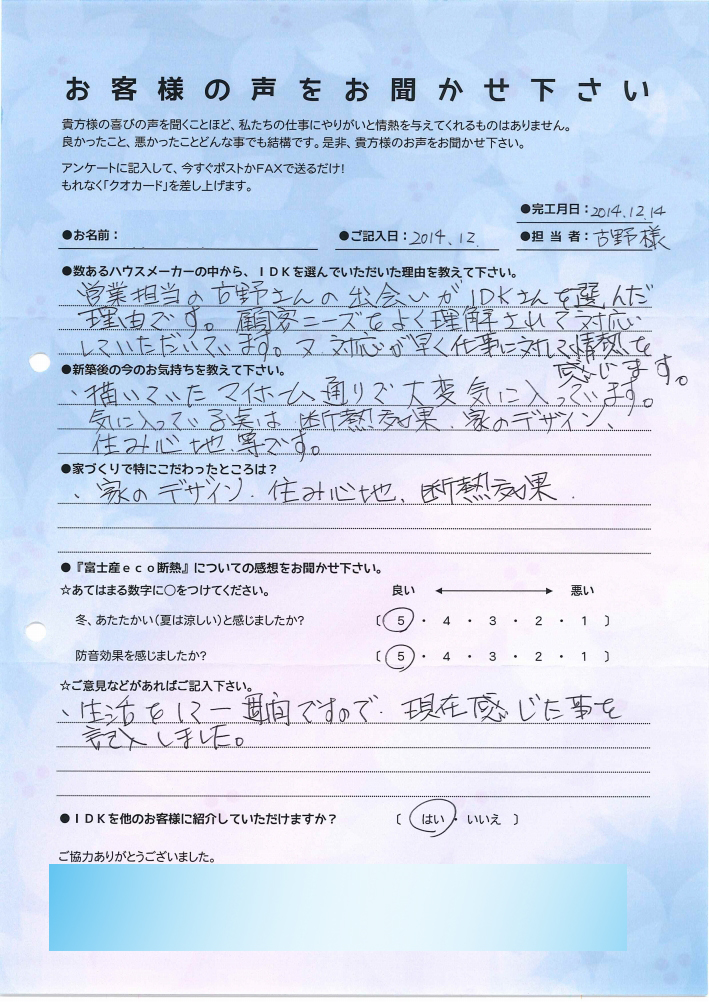 お客様の声をお聞かせ下さい
貴方様の喜びの声を聞くことほど、私たちの仕事にやりがいと情熱を与えてくれるものはありません。
良かったこと、悪かったことどんな事でも結構です。是非、貴方様のお声をお聞かせ下さい。
アンケートに記入して、今すぐポストかFAXで送るだけ!
もれなく「クオカード」を差し上げます。
●完工月日：2014.12.14
●お名前：
●ご記入日：2014.12.
●担当者：古野様
●数あるハウスメーカーの中から、IDKを選んでいただいた理由を教えて下さい。
営業担当の古野さんの出会いがIDKさんを選んだ
理由です。顧客ニーズをよく理解されて対応
していただいています。又対応が早く仕事に対して情熱を
感じます。
●新築後の今のお気持ちを教えて下さい。
、描いていたマイホーム通りで大変気に入っています。
気に入っている事は断熱効果、家のデザイン、
住み心地、等です。
●家づくりで特にこだわったところは?
、家のデザイン、住み心地、断熱効果.
●『富士産eco断熱』についての感想をお聞かせ下さい。
☆あてはまる数字に○をつけてください。 良い 悪い
冬、あたたかい（夏は涼しい）と感じましたか? 〔 5 ・ 4 ・ 3 ・ 2 ・ 1 〕
防音効果を感じましたか? 〔 5 ・ 4 ・ 3 ・ 2 ・ 1 〕
☆ご意見などがあればご記入下さい。
、生活をして一週間ですので、現在感じた事を
記入しました。
●IDKを他のお客様に紹介していただけますか? 〔 はい ・ いいえ 〕
ご協力ありがとうございました。